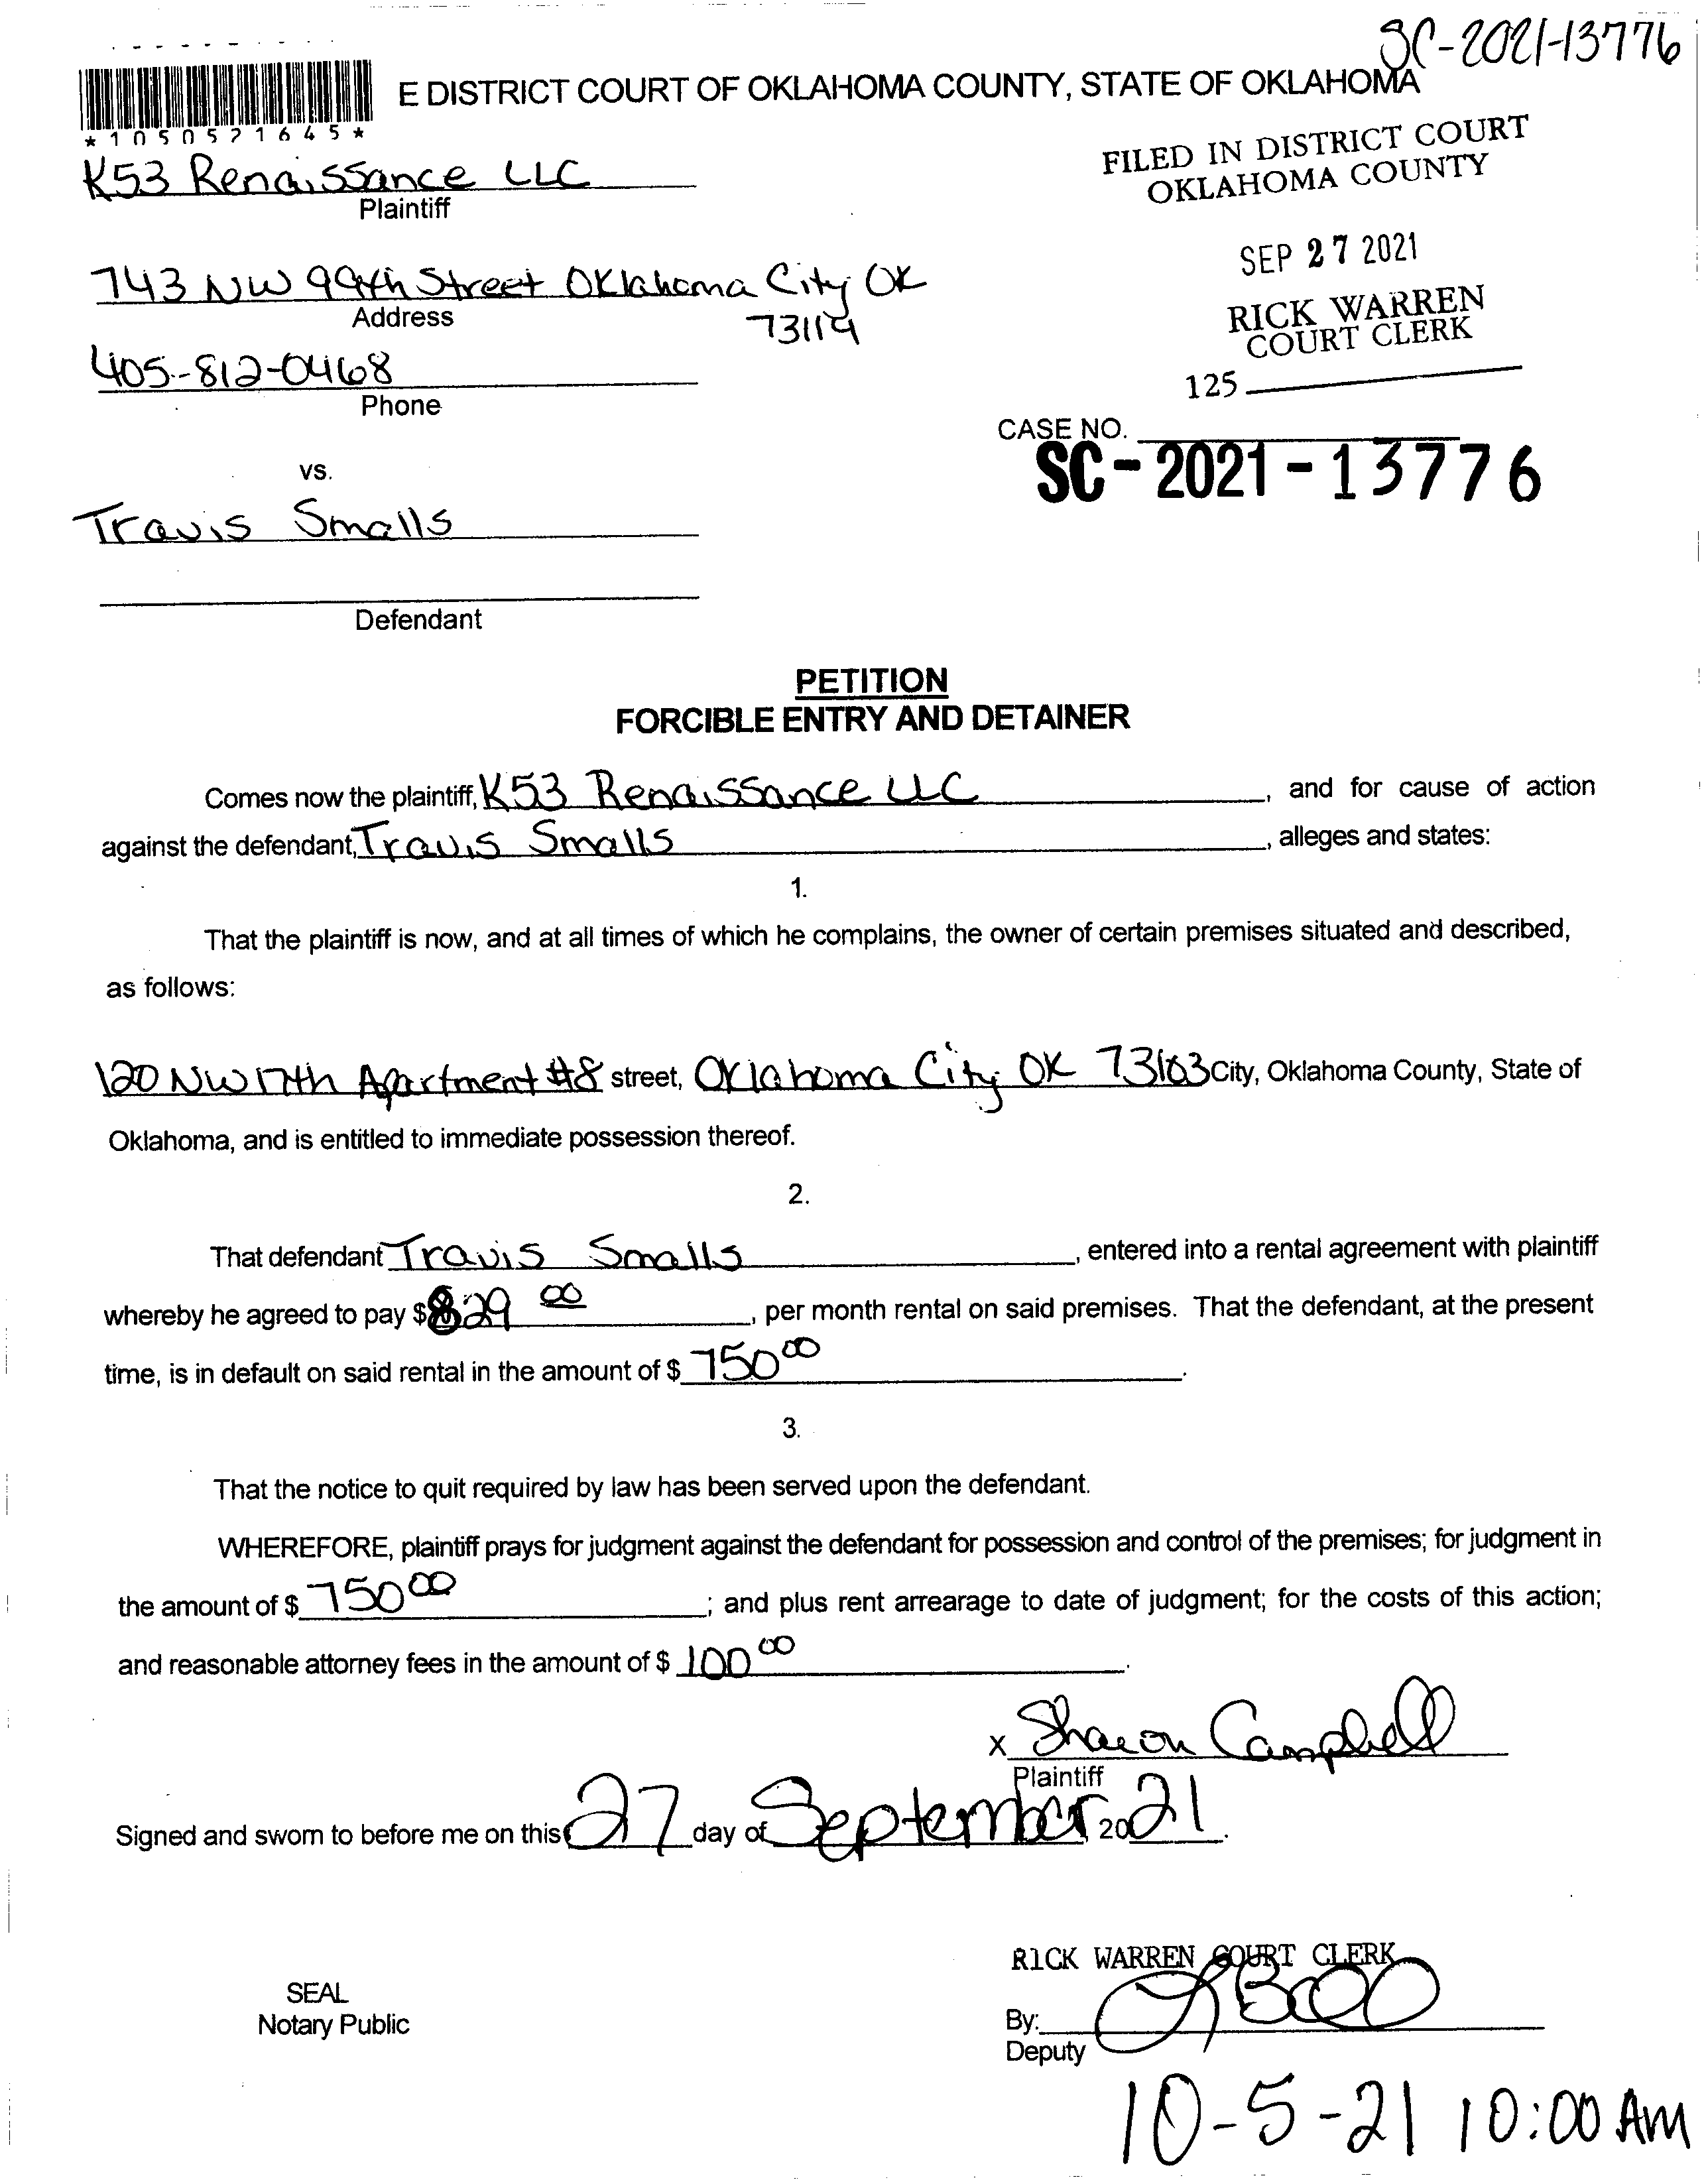 SC-2021-13776
E DISTRICT COURT OF OKLAHOMA COUNTY, STATE OF OKLAHOMA
*1050521645*
K53 Renaissance LLC
Plaintiff
FILED IN DISTRICT COURT
OKLAHOMA COUNTY
743 NW 99th Street Oklahoma City OK
73114
Address
SEP 27 2021
RICK WARREN
COURT CLERK
405-812-0468
Phone
125
CASE NO.
SC-2021-13776
vs.
Travis Smalls
Defendant
PETITION
FORCIBLE ENTRY AND DETAINER
Comes now the plaintiff, K53 Renaissance LLC, and for cause of action
against the defendant, Travis Smalls, alleges and states:
1.
That the plaintiff is now, and at all times of which he complains, the owner of certain premises situated and described,
as follows:
120 NW 17th Apartment #8 street, Oklahoma City OK 73103 City, Oklahoma County, State of
Oklahoma, and is entitled to immediate possession thereof.
2.
That defendant Travis Smalls, entered into a rental agreement with plaintiff
whereby he agreed to pay $829 00, per month rental on said premises. That the defendant, at the present
time, is in default on said rental in the amount of $ 750 00.
3.
That the notice to quit required by law has been served upon the defendant.
WHEREFORE, plaintiff prays for judgment against the defendant for possession and control of the premises; for judgment in
the amount of $ 750 00; and plus rent arrearage to date of judgment; for the costs of this action;
and reasonable attorney fees in the amount of $ 100 00.
x Sharon Campbell
Plaintiff
Signed and sworn to before me on this 27 day of September, 2021.
RICK WARREN COURT CLERK
SEAL
Notary Public
By:
Deputy
10-5-21 10:00 AM